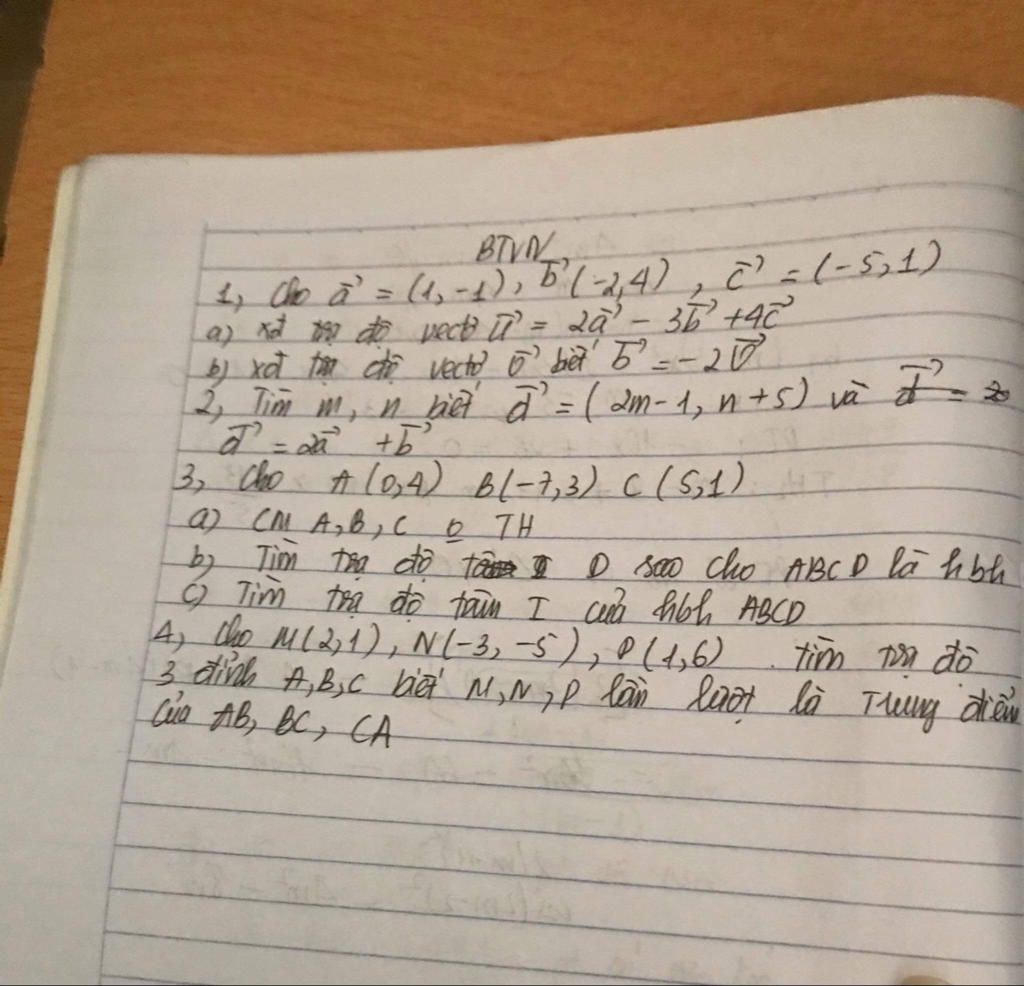 BTVN
1, Cho a⃗ = (1,-1), b⃗ (-2,4), c⃗ = (-5,1)
a) xđ tọa độ vectơ u⃗ = 2a⃗ - 3b⃗ + 4c⃗
b) xđ tọa độ vectơ v⃗ biết b⃗ = -2v⃗
2, Tìm m, n biết d⃗ = (2m-1, n+5) và
d⃗ = 2a⃗ + b⃗
3, Cho A(0,4) B(-7,3) C(5,1)
a) CM A,B,C o TH
b) Tìm tọa độ D sao cho ABCD là hbh
c) Tìm tọa độ tâm I của hbh ABCD
4, Cho M(2,1), N(-3,-5), P(1,6). tìm tọa độ
3 đỉnh A,B,C biết M,N,P lần lượt là Trung điểm
của AB, BC, CA